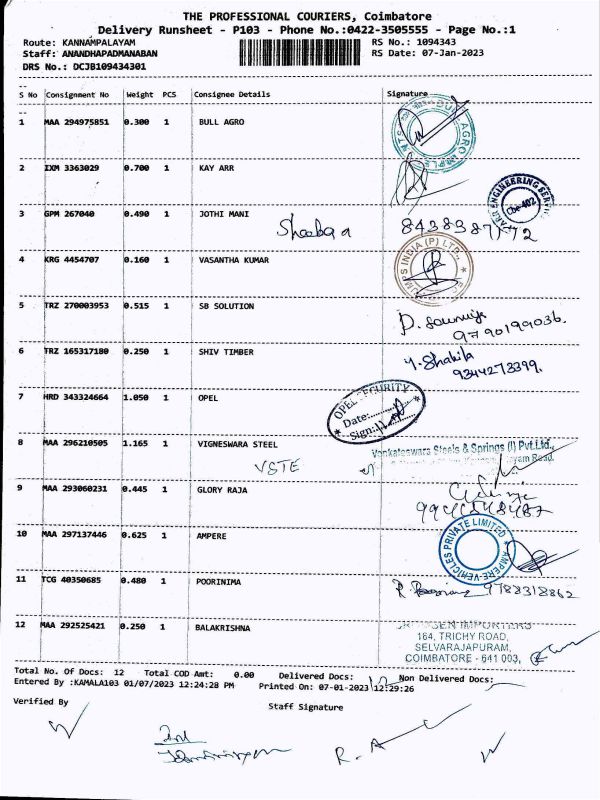 THE PROFESSIONAL COURIERS, Coimbatore
Delivery Runsheet - P103 - Phone No.:0422-3505555 - Page No.:1
Route: KANNAMPALAYAM RS No.: 1094343
Staff: ANANDHAPADMANABAN RS Date: 07-Jan-2023
DRS No.: DCJB109434301
S No Consignment No Weight PCS Consignee Details Signature
1 MAA 294975851 0.300 1 BULL AGRO
2 IXM 3363029 0.700 1 KAY ARR
ENGINEERING
Cbe-402
3 GPM 267040 0.490 1 JOTHI MANI
8438387172
4 KRG 4454707 0.160 1 VASANTHA KUMAR
INDIA (P) LTD.,
5 TRZ 270003953 0.515 1 SB SOLUTION
9790199036.
6 TRZ 165317180 0.250 1 SHIV TIMBER
Y. Shakila
9344273399.
7 HRD 343324664 1.050 1 OPEL
OPEL SECURITY
Date:
Sign:
8 MAA 296210505 1.165 1 VIGNESWARA STEEL
Venkateswara Steels & Springs (I) Pvt.Ltd.,
VSTE
9 MAA 293060231 0.445 1 GLORY RAJA
10 MAA 297137446 0.625 1 AMPERE
AMPERE-VEHICLES PRIVATE LIMITED
11 TCG 40350685 0.480 1 POORINIMA
9788318862
12 MAA 292525421 0.250 1 BALAKRISHNA
IMPORTERS
164, TRICHY ROAD,
SELVARAJAPURAM,
COIMBATORE - 641 003,
Total No. Of Docs: 12 Total COD Amt: 0.00 Delivered Docs: 12 Non Delivered Docs:
Entered By :KAMALA103 01/07/2023 12:24:28 PM Printed On: 07-01-2023 12:29:26
Verified By Staff Signature
R. A